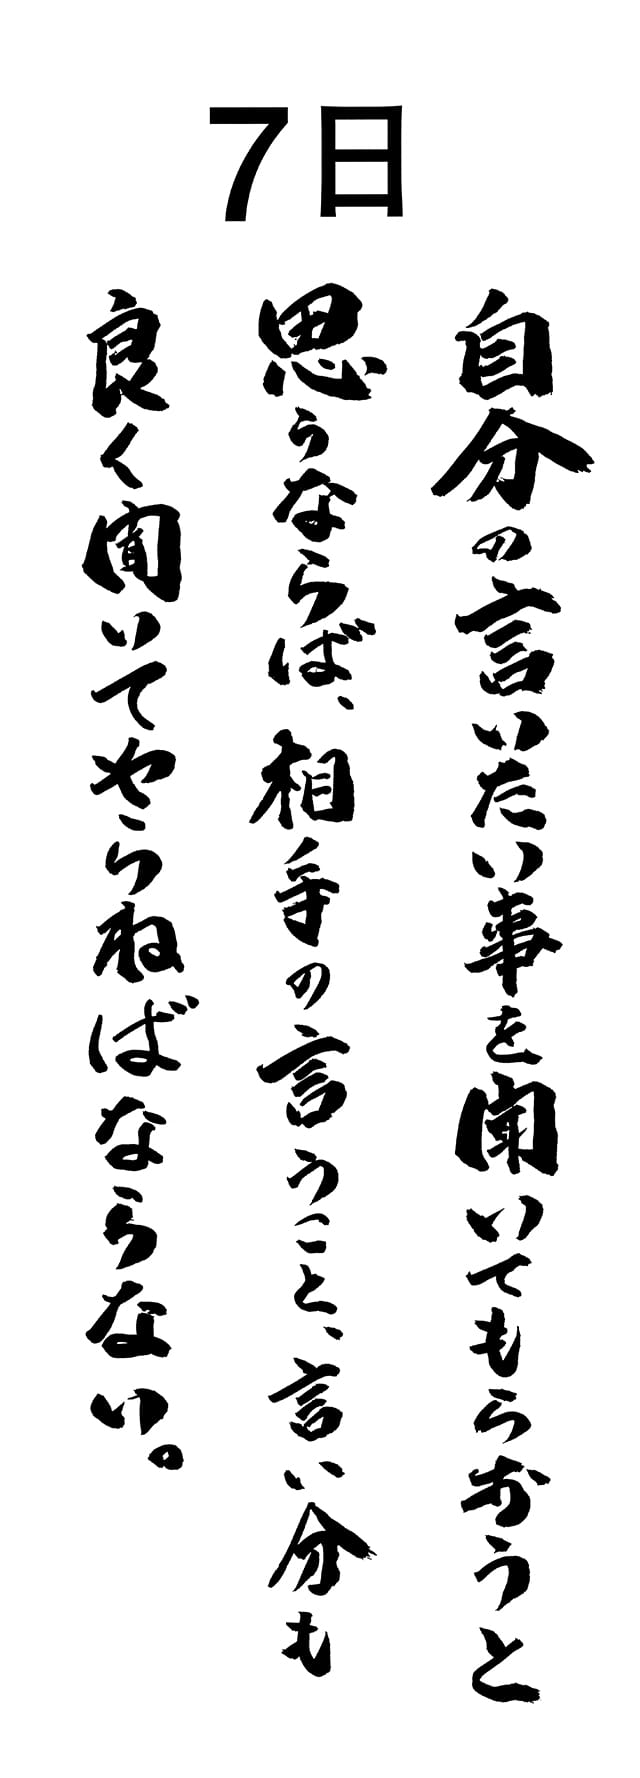 7日
自分の言いたい事を聞いてもらおうと
思うならば、相手の言うこと、言い分も
良く聞いてやらねばならない。